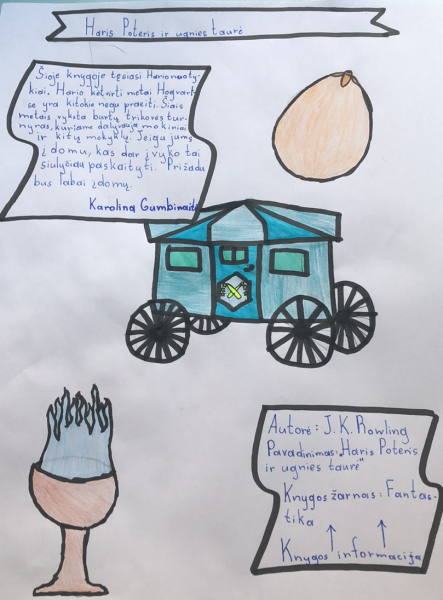 Haris Poteris ir ugnies taurė
Šioje knygoje tęsiasi Hario nuoty-
kiai. Hario ketvirti metai Hogvart-
se yra kitokie negu praeiti. Šiais
metais vyksta burtų trikovės tur-
nyras, kuriame dalyvauja mokiniai
ir kitų mokyklų. Jeigu jums
įdomu, kas dar įvyko tai
siulyčiau paskaityti. Prižadu
bus labai įdomų.
Karolina Gumbinaitė
Autorė: J.K.Rowling
Pavadinimas: „Haris Poteris
ir ugnies taurė"
Knygos žarnas: Fantas-
tika
Knygos informacija